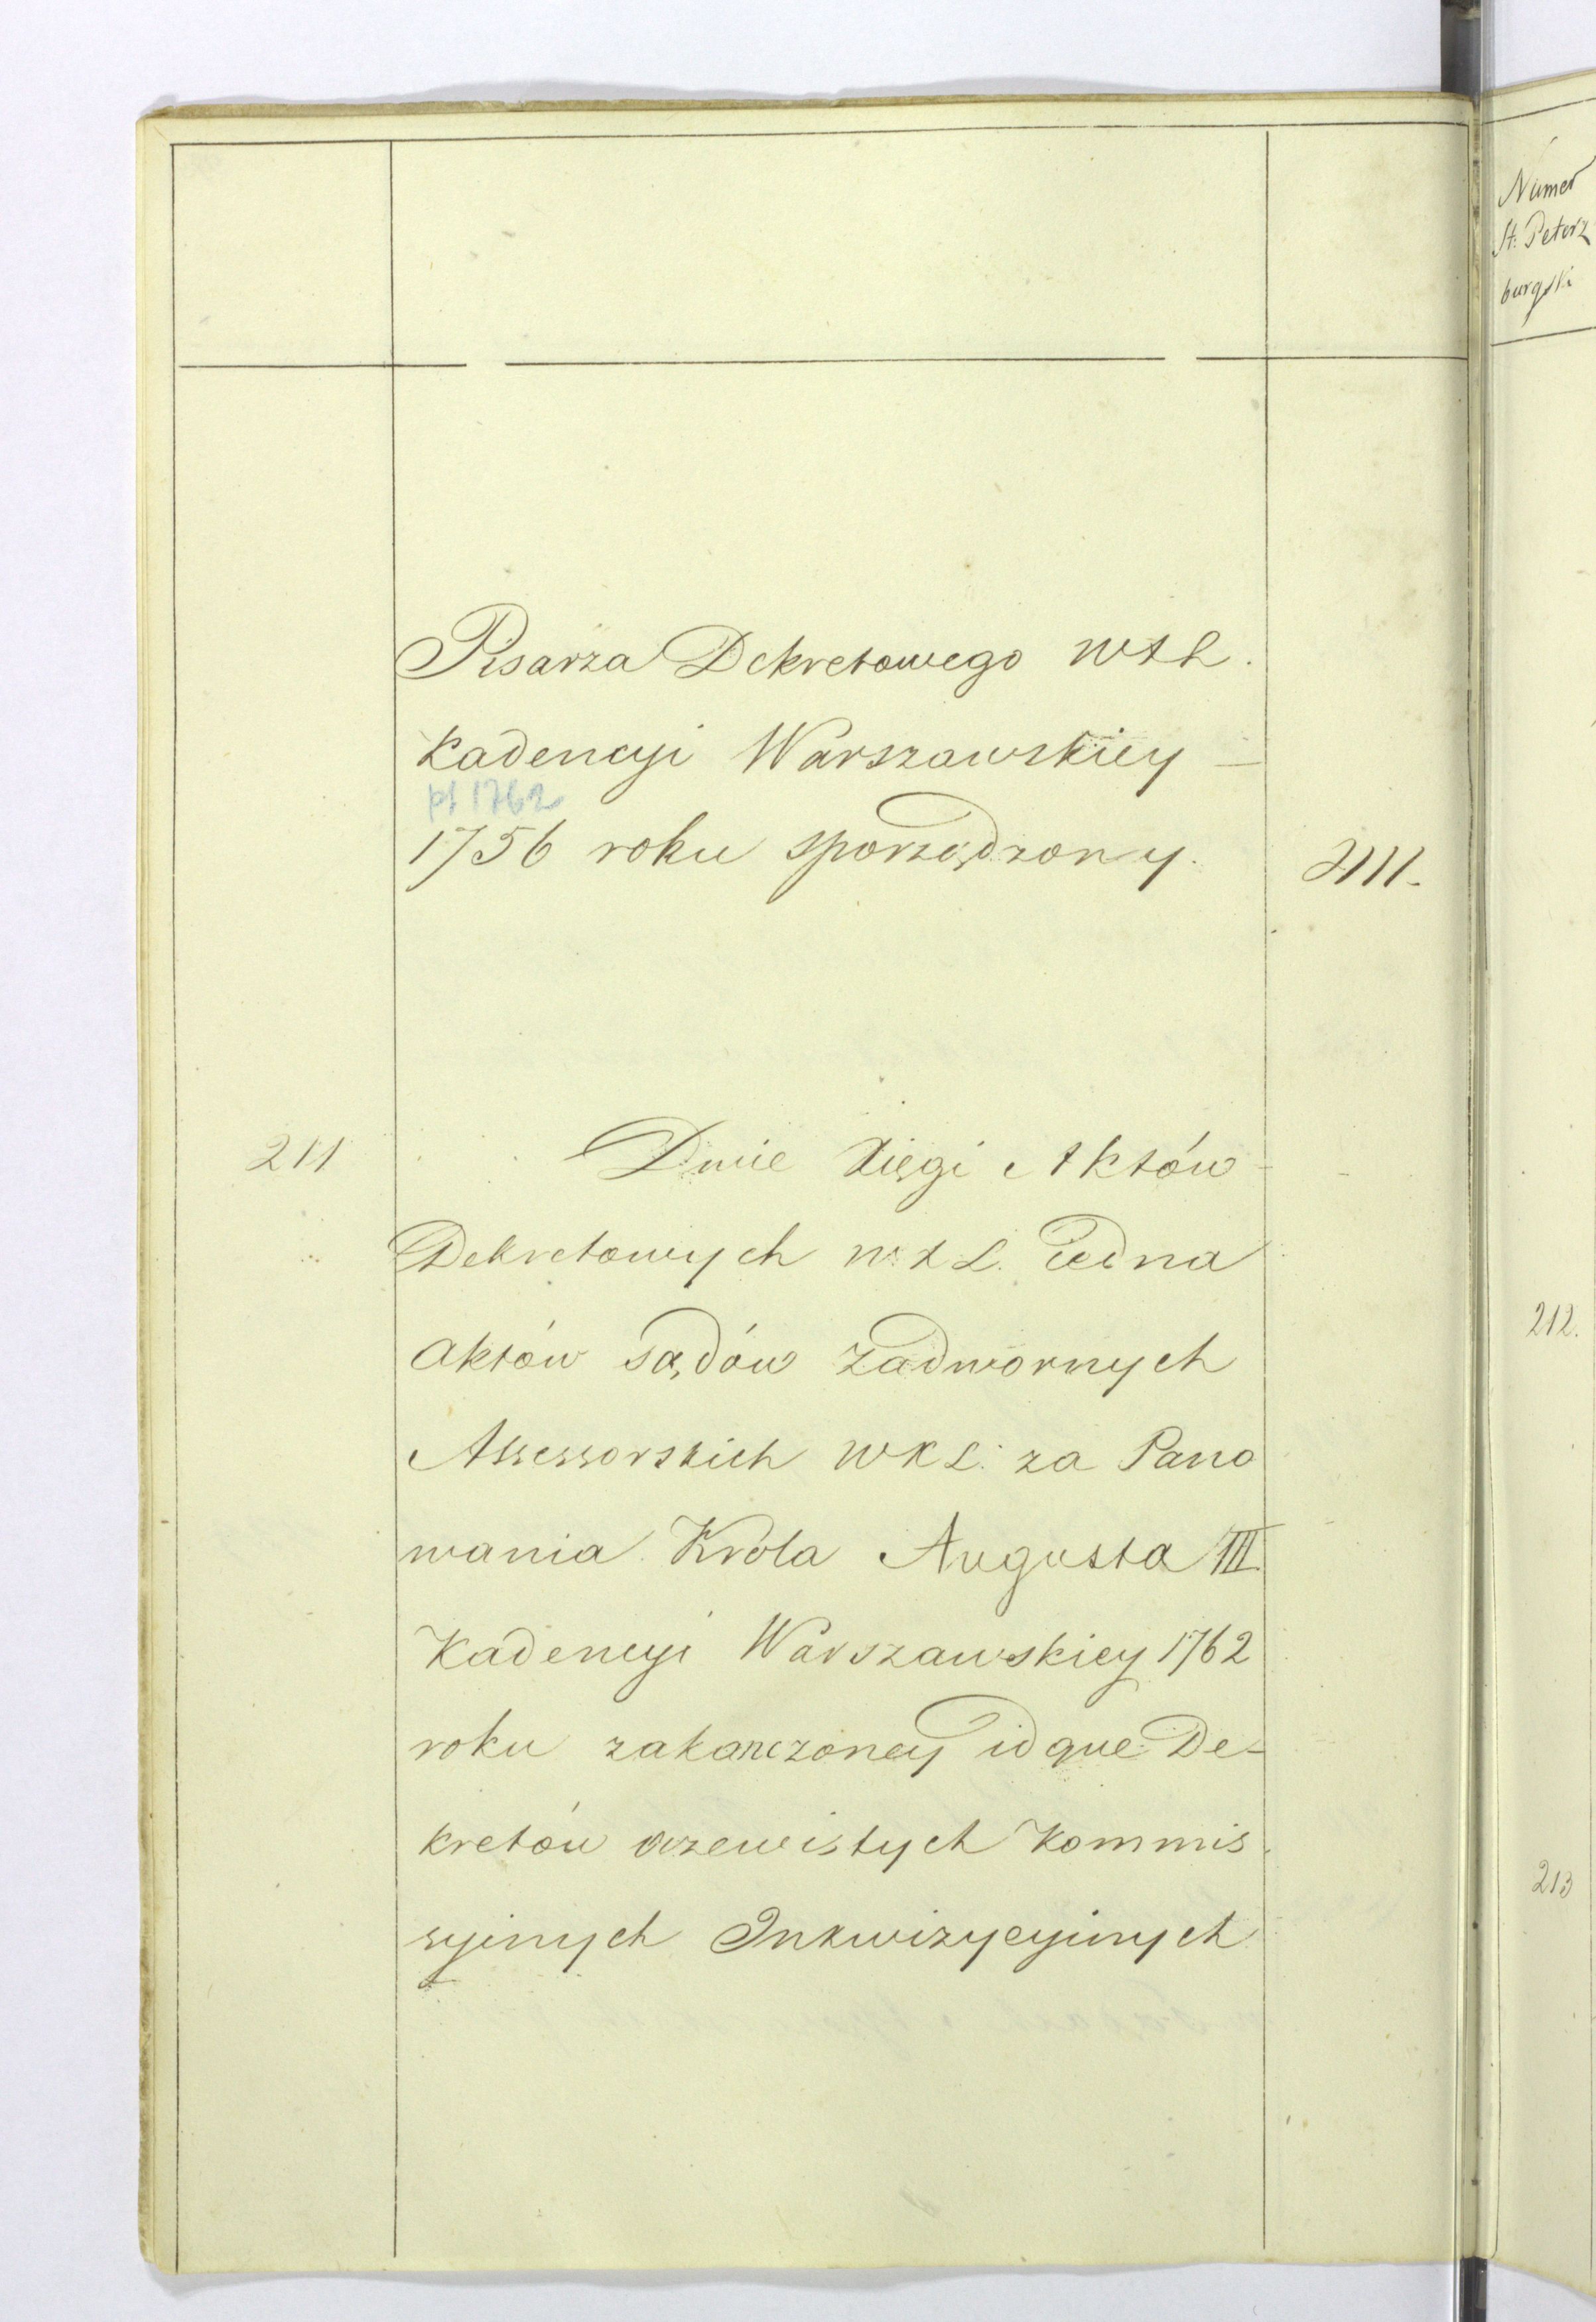 Pisarza Dekretowego WXL.
Kadencyi Warszawskiey
1762
1756 roku sporządzony.
2111.
211
Dwie Xięgi Aktów
Dekretowych W.X.L. iedna
aktów sądów zadwornych
Assessorskich WXL: za Pano
wania Króla Augusta III
Kadencyi Warszawskiey 1762
roku zakonczoney idque De-
kretów oczewistych Kommis
syinych Inkwizycyinych
Numer
St. Peterz
burgski
212.
213